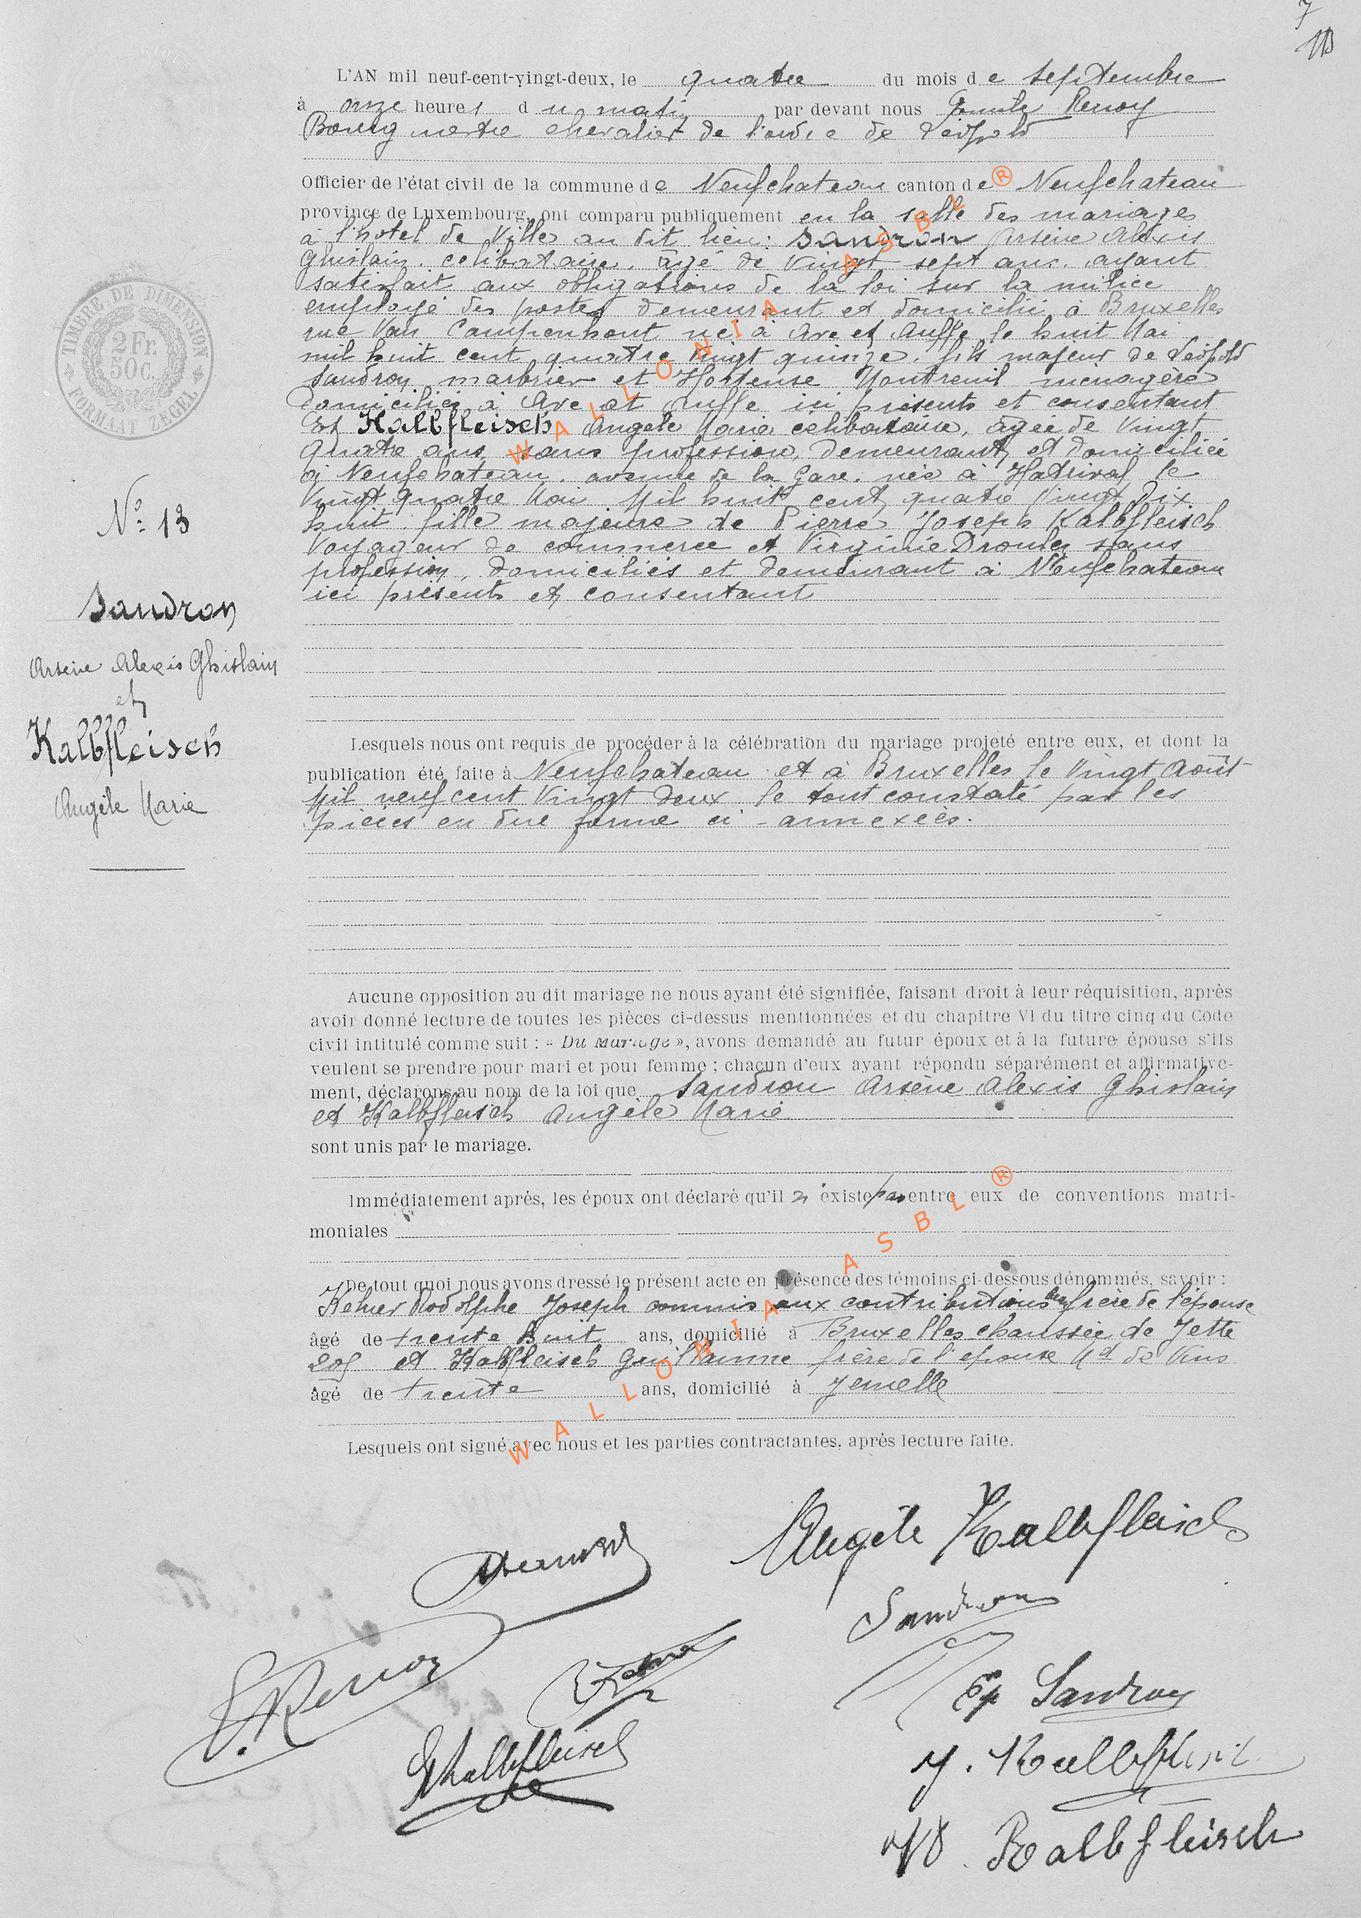 7
L'AN mil neuf-cent-vingt-deux, le quatre du mois de septembre
à onze heures du matin par devant nous Emile Renoy
Bourgmestre chevalier de l'ordre de Léopold
Officier de l'état civil de la commune de Neufchateau canton de Neufchateau
province de Luxembourg, ont comparu publiquement en la salle des mariages
à l'hotel de Ville au dit lieu: Sandron Arsène Alexis
Ghislain, celibataire, agé de Vingt sept ans, ayant
satisfait aux obligations de la loi sur la milice
employé des postes demeurant et domicilié à Bruxelles
rue Van Campenhout né à Ave et Auffe le huit Mai
mil huit cent quatre vingt quinze, fils majeur de Léopold
Sandron marbrier et Hortense Montreuil ménagère
domiciliés à Ave et Auffe ici présents et consentant
Et Kalbfleisch Angèle Marie celibataire, agée de Vingt
quatre ans, sans profession, demeurant et domiciliée
à Neufchateau, avenue de la Gare, née à Hatrival le
Vingt quatre Mil huit cent quatre Vingt Dix
huit, fille majeure de Pierre Joseph Kalbfleisch
Voyageur de commerce et Virginie sans
profession, domiciliés et demeurant à Neufchateau
ici présents et consentant
TIMBRE DE DIMENSION
2 Fr.
50 C.
FORMAAT ZEGEL
No 13
Sandron
Arsène Alexis Ghislain
et
Kalbfleisch
Angèle Marie
Lesquels nous ont requis de procéder à la célébration du mariage projeté entre eux, et dont la
publication été faite à Neufchateau et à Bruxelles le Vingt Août
Mil neuf cent Vingt deux, le tout constaté par les
pièces en due forme ci-annexées.
Aucune opposition au dit mariage ne nous ayant été signifiée, faisant droit à leur réquisition, après
avoir donné lecture de toutes les pièces ci-dessus mentionnées et du chapitre VI du titre cinq du Code
civil intitulé comme suit : « Du Mariage », avons demandé au futur époux et à la future épouse s'ils
veulent se prendre pour mari et pour femme ; chacun d'eux ayant répondu séparément et affirmative-
ment, déclarons au nom de la loi que Sandron Arsène Alexis Ghislain
et Kalbfleisch Angèle Marie
sont unis par le mariage.
Immédiatement après, les époux ont déclaré qu'il n'existe pas entre eux de conventions matri-
moniales
De tout quoi nous avons dressé le présent acte en présence des témoins ci-dessous dénommés, savoir :
Rodolphe Joseph commis aux contributions frère de l'épouse
âgé de trente huit ans, domicilié à Bruxelles chaussée de Jette
205 et Kalbfleisch Guillaume frère de l'épouse Md de Vins
âgé de trente ans, domicilié à Jemelle
Lesquels ont signé avec nous et les parties contractantes, après lecture faite.
Angèle Kalbfleisch
Sandron
E. Renoy
Ep Sandron
Kalbfleisch
J. Kalbfleisch
Kalbfleisch
WALLONIA ASBL ®
WALLONIA ASBL ®